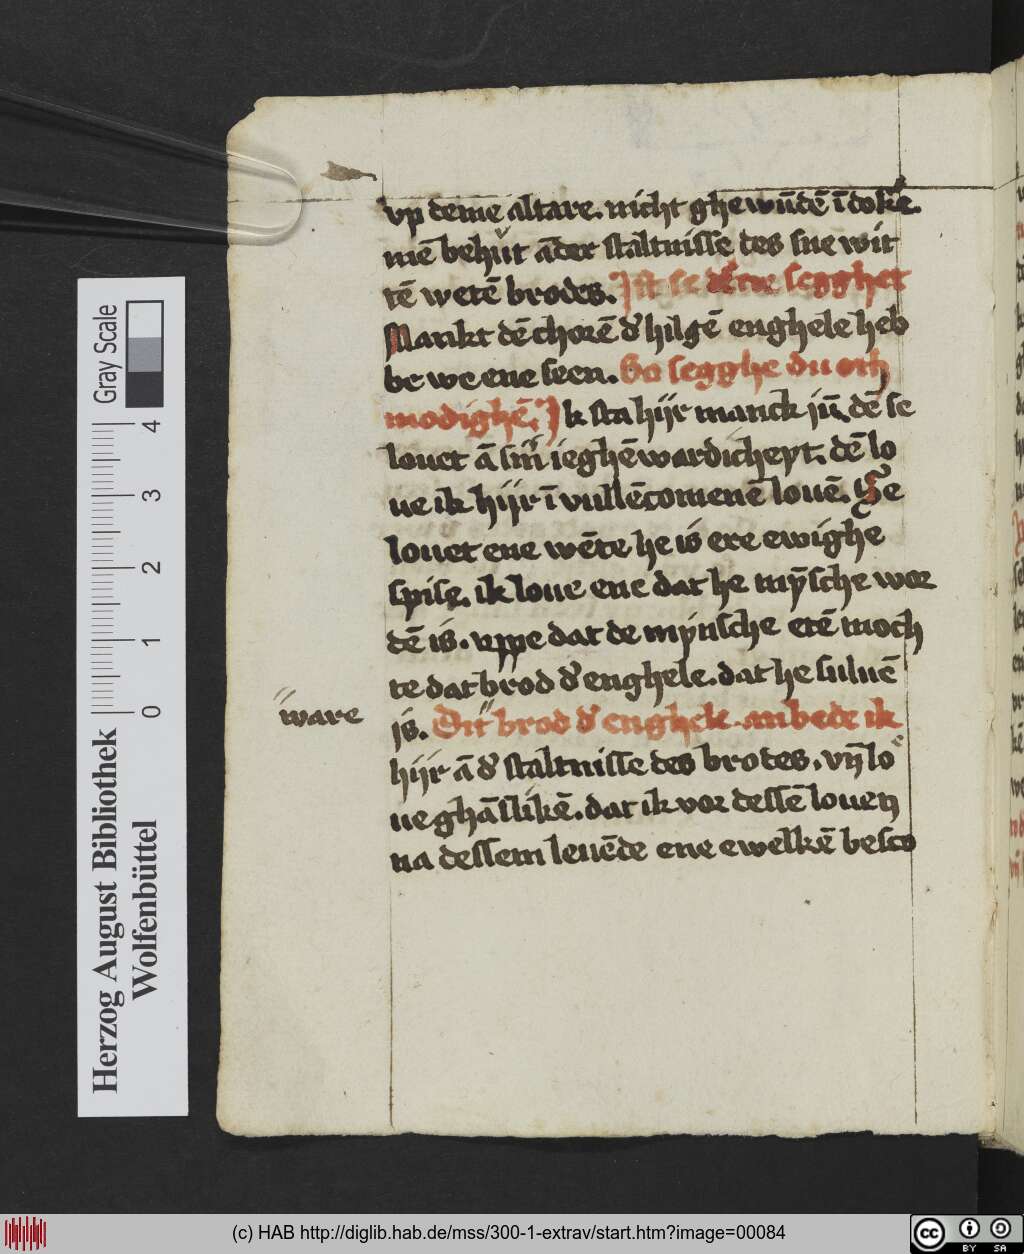 vp deme altare. nicht ghewūdē ī doke.
mē behut āder staltnisse des sne wit
tē wetē brodes. Ist se dē me segghet
Mankt dē chorē d' hilgē enghele heb
be we ene seen. So segghe du oth
modighē. Ik sta hijr manck jū. dē se
louet ā sin ieghēwardicheyt. dē lo
ue ik hijr ī vullēcomenē louē. Se
louet ene wēte he is ere ewighe
spise. ik loue ene dat he mȳsche wor
dē is. vppe dat de mynsche etē moch
te dat brod d' enghele. dat he suluē
ware
is. Dit brod d' enghele anbede ik
hijr ā d' staltnisse des brodes. vn̄ lo
ue ghāslikē. dat ik vor dessē louen
na dessem leuēde ene ewelkē besco
Gray Scale
0 1 2 3 4
Herzog August Bibliothek
Wolfenbüttel
(c) HAB http://diglib.hab.de/mss/300-1-extrav/start.htm?image=00084
cc BY SA